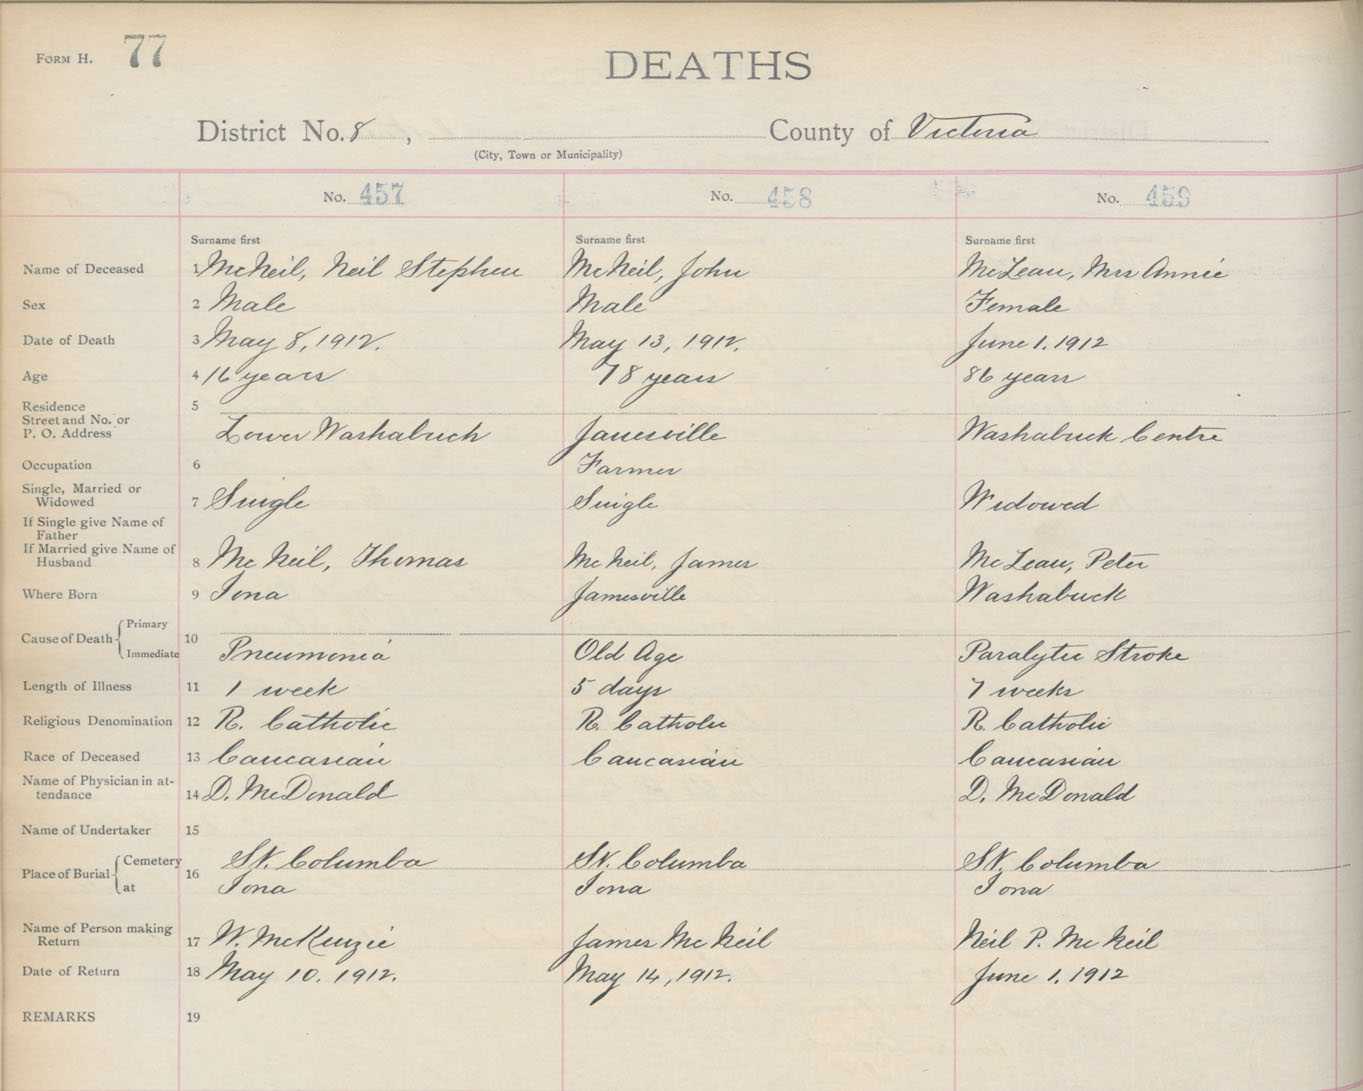 FORM H. 77
DEATHS
District No. 8, County of Victoria
(City, Town or Municipality)
No. 457 No. 458 No. 459
Surname first Surname first Surname first
Name of Deceased 1 McNeil, Neil Stephen McNeil, John McLean, Mrs Annie
Sex 2 Male Male Female
Date of Death 3 May 8, 1912. May 13, 1912. June 1. 1912
Age 4 16 years 78 years 86 years
Residence 5
Street and No. or
P. O. Address Lower Washabuck Jamesville Washabuck Centre
Occupation 6 Farmer
Single, Married or
Widowed 7 Single Single Widowed
If Single give Name of
Father
If Married give Name of
Husband 8 McNeil, Thomas McNeil, James McLean, Peter
Where Born 9 Iona Jamesville Washabuck
Primary
Cause of Death 10
Immediate Pneumonia Old Age Paralytic Stroke
Length of Illness 11 1 week 5 days 7 weeks
Religious Denomination 12 R. Catholic R. Catholic R. Catholic
Race of Deceased 13 Caucasian Caucasian Caucasian
Name of Physician in at-
tendance 14 D. McDonald D. McDonald
Name of Undertaker 15
Cemetery St. Columba St. Columba St. Columba
Place of Burial 16
at Iona Iona Iona
Name of Person making
Return 17 W. McKenzie James McNeil Neil P. McNeil
Date of Return 18 May 10. 1912. May 14, 1912. June 1. 1912
REMARKS 19